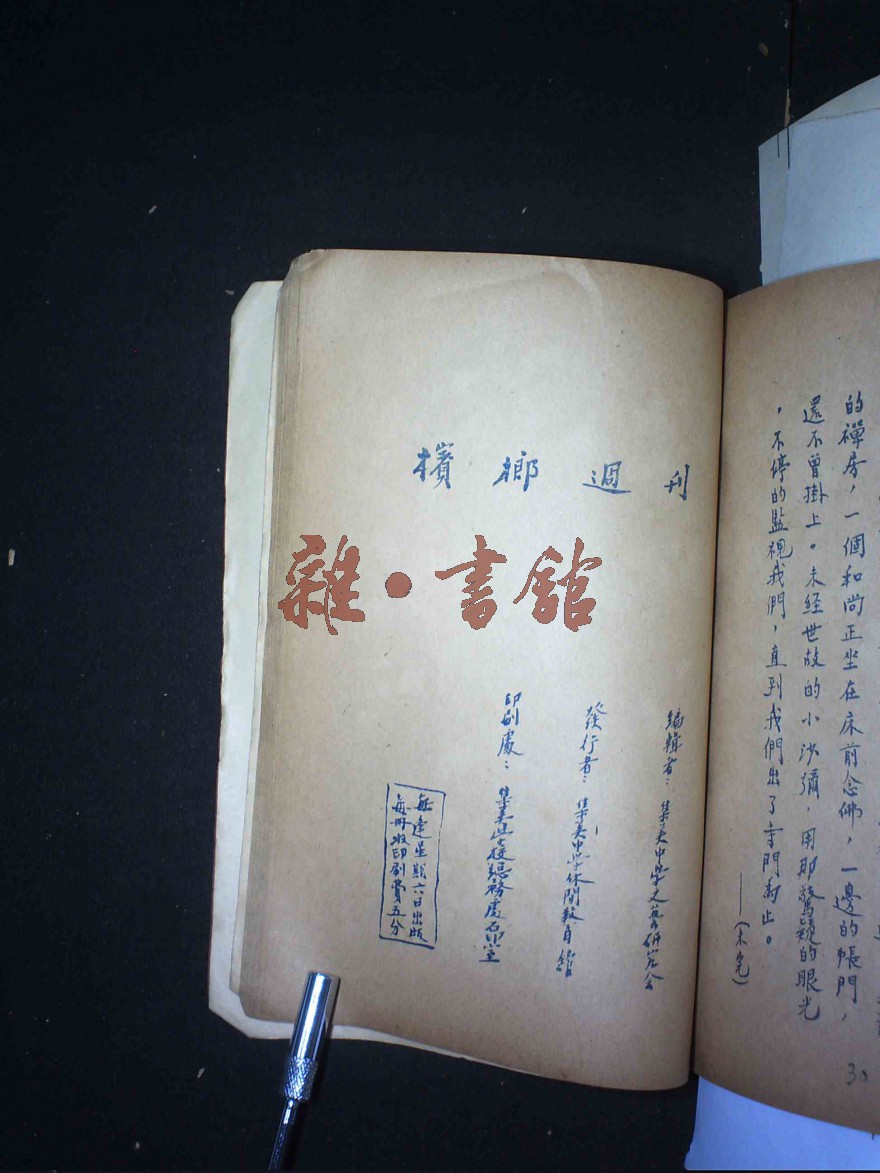 的禪房，一個和尚正坐在床前念佛，一邊的帳門，
還不曾掛上。未经世故的小沙彌，用那驚疑的眼光
，不停的監視我們，直到我們出了寺門為止。
——(未完)
30
檳榔週刊
雜·書館
編輯者：集美中學文藝研究会
發行者：集美中學休閒教育館
印刷處：集美學校總務處石印室
每逢星期六日出版
每冊收印刷費五分